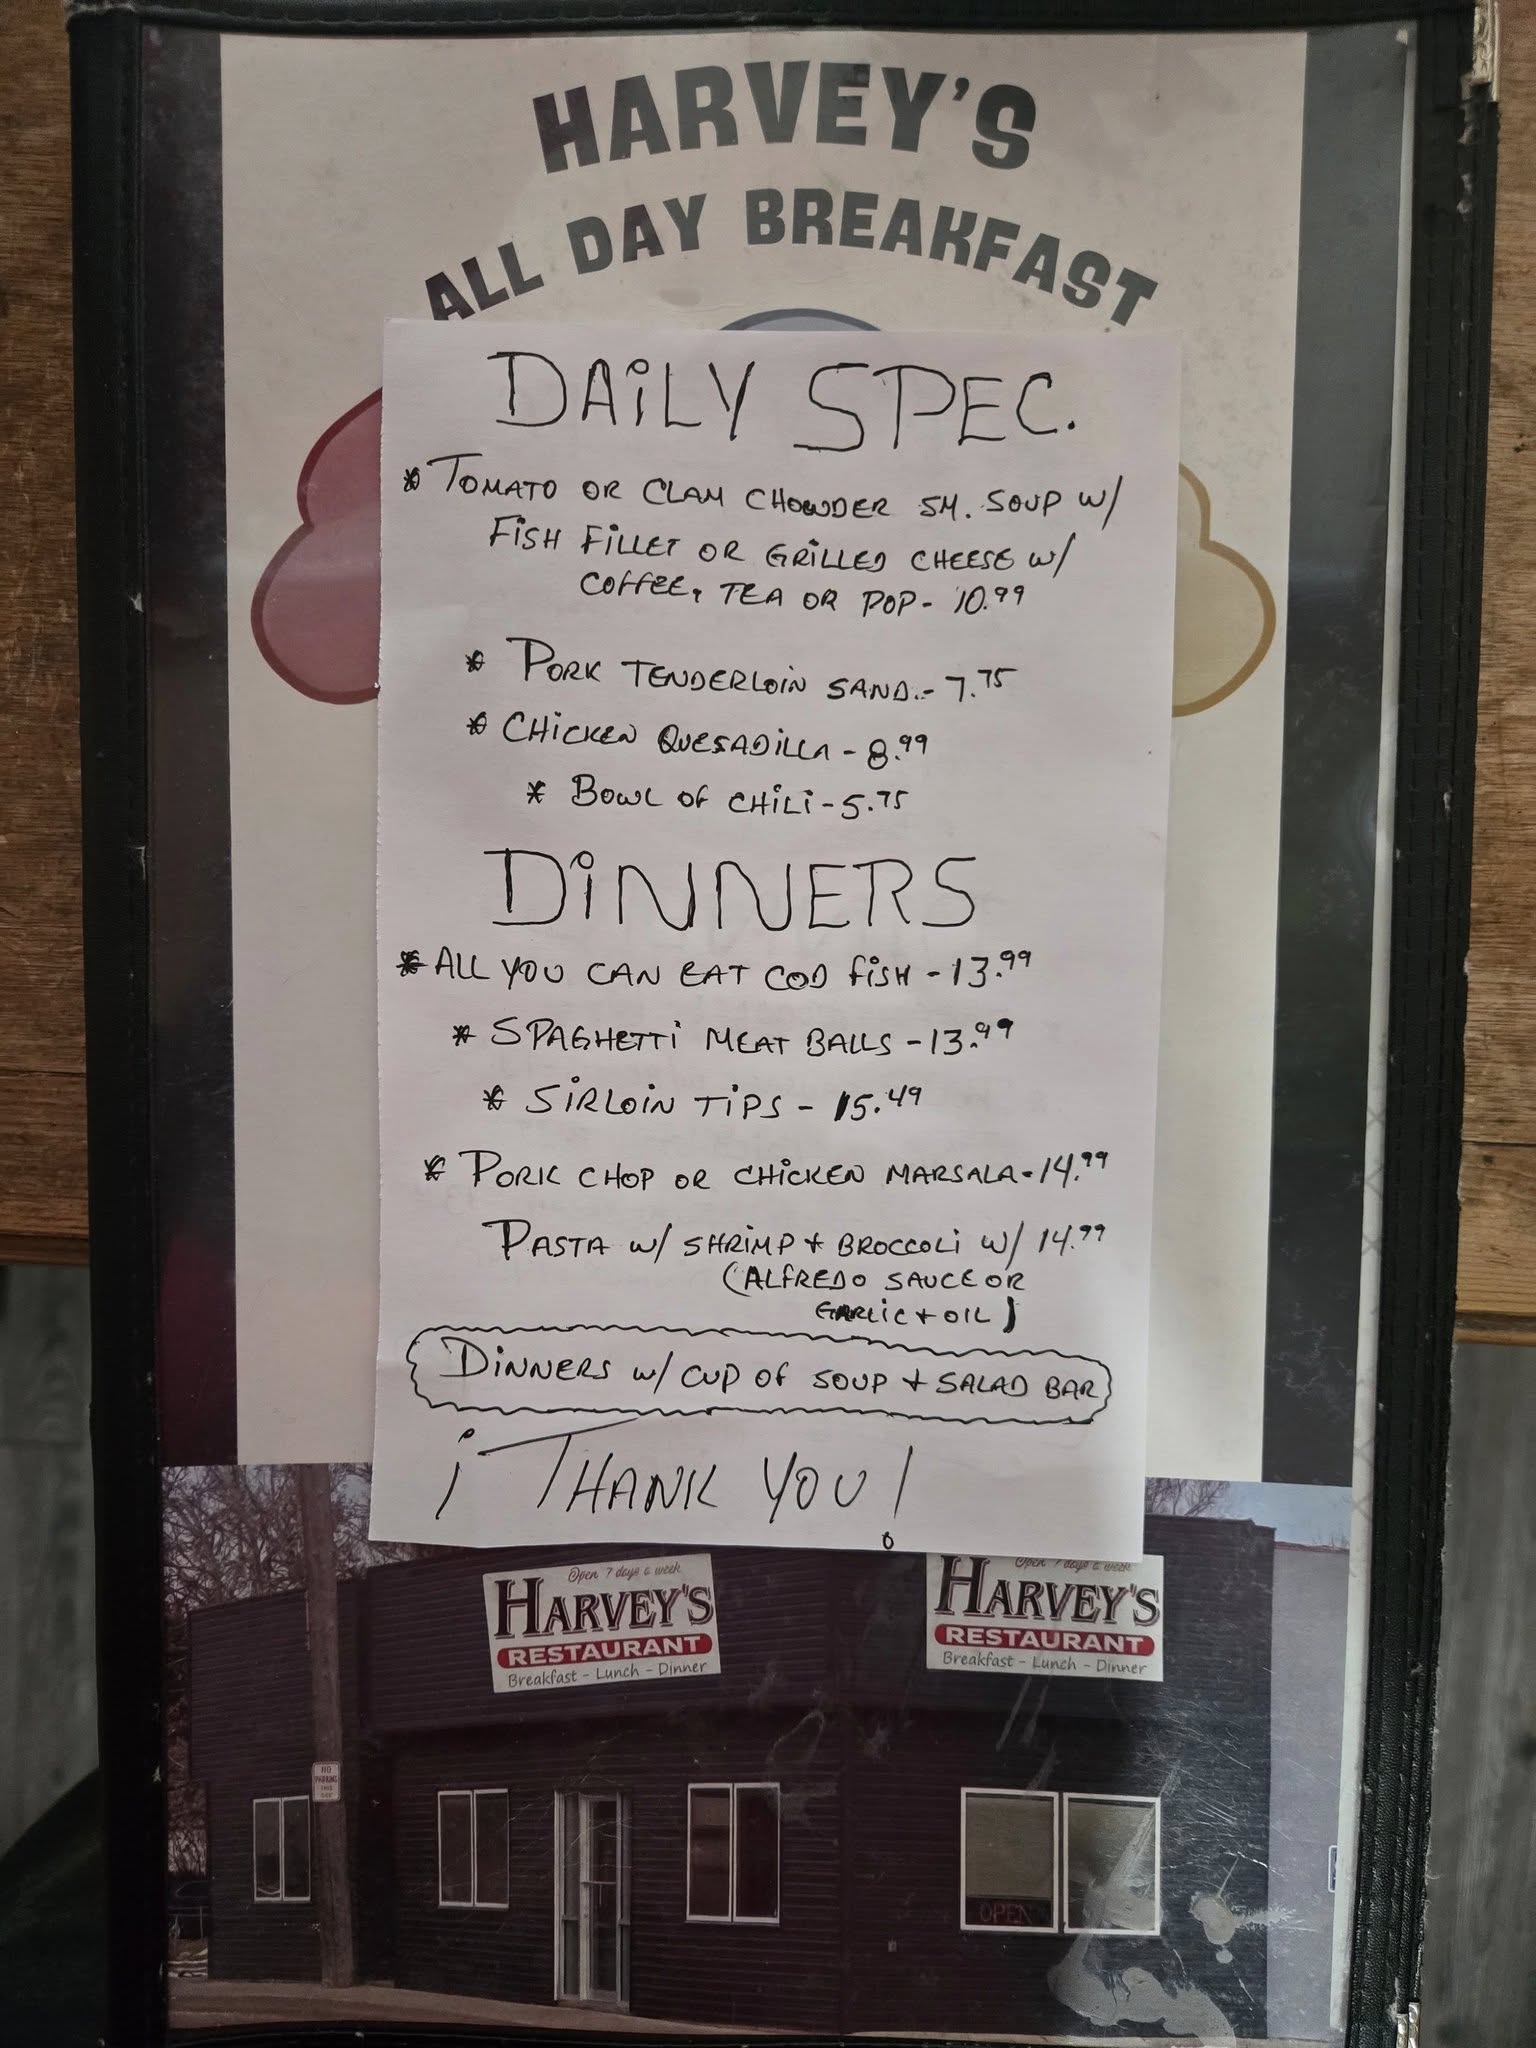 HARVEY'S
ALL DAY BREAKFAST
DAiLY SPEC.
* TOMATO OR CLAM CHOWDER SM. SOUP W/
FiSH FiLLET OR GRiLLED CHEESE W/
COFFEE, TEA OR POP - 10.99
* PORK TENDERLOiN SAND. - 7.75
* CHiCKEN QUESADiLLA - 8.99
* BOWL OF CHiLi - 5.75
DiNNERS
* ALL YOU CAN EAT COD FiSH - 13.99
* SPAGHETTi MEAT BALLS - 13.99
* SiRLOiN TiPS - 15.49
* PORK CHOP OR CHiCKEN MARSALA - 14.99
PASTA W/ SHRiMP + BROCCOLi W/ 14.99
(ALFREDO SAUCE OR
GARLiC + OIL)
DiNNERS W/ CUP OF SOUP + SALAD BAR
¡ THANK YOU!
Open 7 days a week
HARVEY'S
RESTAURANT
Breakfast - Lunch - Dinner
Open 7 days a week
HARVEY'S
RESTAURANT
Breakfast - Lunch - Dinner
NO
PARKING
OPEN